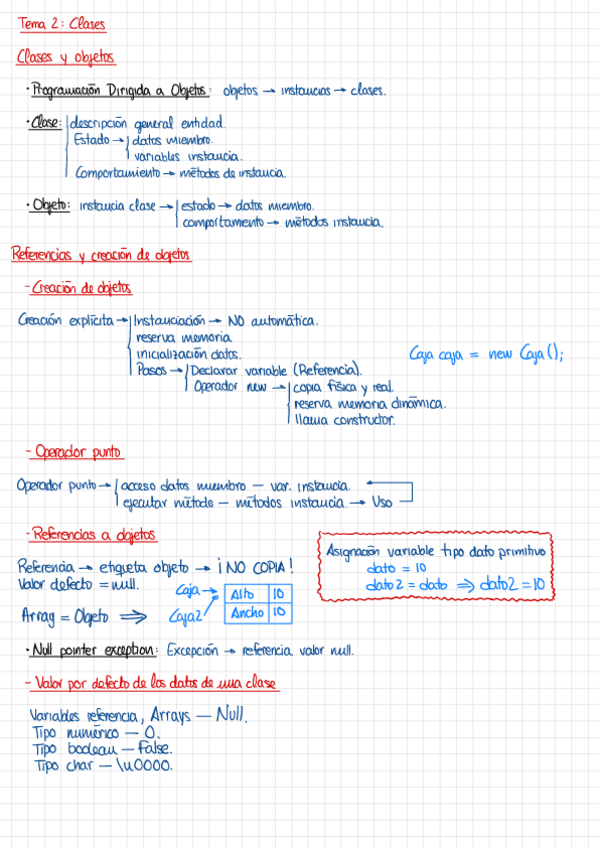 Tema 2: Clases
Clases y objetos
· Programación Dirigida a Objetos: objetos → instancias → clases.
· Clase: descripción general entidad.
Estado → datos miembro.
variables instancia.
Comportamiento → métodos de instancia.
· Objeto: instancia clase → estado → datos miembro.
comportamento → métodos instancia.
Referencias y creación de objetos
- Creación de objetos
Creación explícita → Instanciación → NO automática.
reserva memoria
inicialización datos.
Caja caja = new Caja();
Pasos → Declarar variable (Referencia).
Operador new → copia física y real.
reserva memoria dinámica.
llama constructor.
- Operador punto
Operador punto → acceso datos miembro — var. instancia.
ejecutar método — métodos instancia. → Uso
- Referencias a objetos
Referencia → etiqueta objeto → ¡NO COPIA!
Valor defecto = null.
Array = Objeto ⟹
Caja →
Caja2
Alto 10
Ancho 10
Asignación variable tipo dato primitivo
dato = 10
dato2 = dato ⟹ dato2 = 10
· Null pointer exception: Excepción → referencia valor null.
- Valor por defecto de los datos de una clase
Variables referencia, Arrays — Null.
Tipo numérico — 0.
Tipo boolean — False.
Tipo char — \u0000.